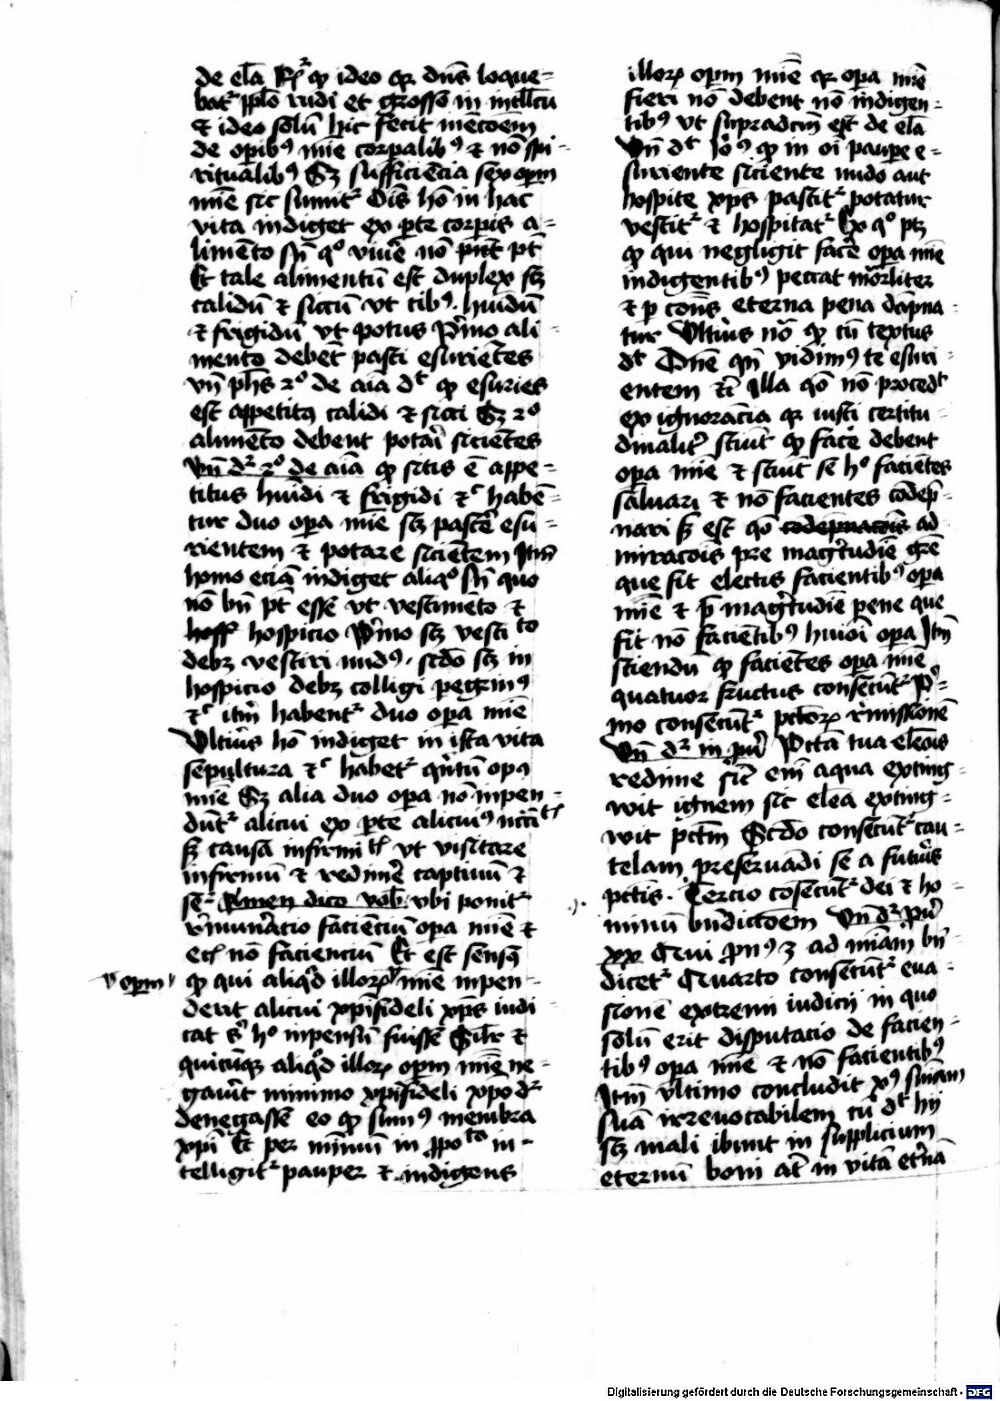 de el̄a R̄ꝰ ꝙ ideo qꝛ dn̄s loque=
batᷣ pp̄lo rudi et grosso in intllc̄u
⁊ ideo solū hic fecit mēcōem
de oꝑibꝰ mīe corꝑalibꝰ ⁊ nō spi=
ritualibꝰ Sꝫ sufficiēcia sex oꝑm
mīe sic sumitᷣ Oīs hō in hac
vita indiget ex ꝑte corꝑis a=
limēto sn̄ qͦ viuē nō p̄t
Et tale alimentū est duplex sꝫ
calidū ⁊ siccū vt cibꝰ. hūidū
⁊ frigidū vt potus Pͥmo ali=
mento debēt pasci esuriētes
vn̄ ph̄s 2ͦ de aīa dᵗ ꝙ esuries
est appetitꝰ calidi ⁊ sicci Sꝫ 2ͦ
alimēto debent potari siciētes
vn̄ dᷣ 2ͦ de aīa ꝙ sitis ē appe=
titus hūidi ⁊ frigidi ⁊c̄ habē=
tur duo opera mīe sꝫ pascē esu=
rientem ⁊ potare sicientem Itm̄
homo eciā indiget aliqͦ sn̄ quo
nō bn̄ pt̄ esse vt vestimēto ⁊
hospicio Pͥmo sꝫ vestito
debꝫ vestiri nudꝰ. scdo sꝫ in
hospicio debꝫ colligi peg̊rinꝰ
⁊c̄ itm̄ habentᷣ duo opera mīe
Vlterius hō indiget in ista vita
sepultura ⁊c̄ habetᷣ qͥntū opꝰ
mīe Sꝫ alia duo opera nō inpen=
dūtᷣ alicui ex ꝑte alicuiꝰ
sꝫ causa infirmitᵗⁱˢ vt visitare
infirmū ⁊ redimē captiuū ⁊
seᷣ Amen dico vob̄ vbi ponitᷣ
rͤmunˀacio faciēciū opa mīe ⁊
eciā nō facienciū Et est sensꝰ
v̓ oꝑm
ꝙ qui aliqͥd illoꝝ mīe inpen=
derit alicui xp̄ifideli xp̄s iudi
cat sͥ hͦ inpensū fuisse Silr̄ ⁊
quicūqꝫ aliqͥd illoꝝ oꝑm mīe ne=
gauͥt minimo xp̄ifideli xp̄o dᷣ
denegasse eo ꝙ sumꝰ membra
xp̄i Et per minimū in ꝓpoᵗᵒ in=
telligitᷣ pauper ⁊ indigens
illoꝝ oꝑm mīe qꝛ opa mīe
fieri nō debent nō indigen=
tibꝰ vt supradcm̄ est de el̄a
Vn̄ dᵗ Io̓ꝰ ꝙ in oī paupe e=
suriente siciente nudo aut
hospite xp̄s pascitᷣ potatur
vestitᷣ ⁊ hospitatᷣ Ex qͦ ptꝫ
ꝙ qui negligit facē opa mīe
indigentibꝰ peccat mōrliter
⁊ ꝑ cōn̄s eterna pena dāpna=
tur Vlterius nō ꝙ cū textus
dᵗ Dn̄e qn̄ vidimꝰ te esuri=
entem ⁊c̄ Illa q̄o nō procedᵗ
ex ignorācia qꝛ iusti certitu=
dinalitͤ sciūt ꝙ facē debent
opa mīe ⁊ sciūt se hͦ faciētes
saluari ⁊ nō facientes cōdep=
nari sꝫ est q̄o ad
miracōis pre magͥtudiē glͤe
que fit electis facientibꝰ opa
mīe ⁊ p̄ magͥtudiē pene que
fit nō faciētibꝰ huiōi opa Itm̄
sciendū ꝙ facietes opa mīe
quatuor fructus consecūtᷣ Pͥ=
mo consecūtᷣ pctōꝝ rͤmissionē
Vn̄ dᷣ in puͥ Pctā tua elēōis
redime sic̄ eni aqua exting=
wit ignem sic elēa exting=
wit pctm̄ Scdo consecūtᷣ cau=
telam preseruādi se a futuͥs
pctis. Tercio cosecūtᷣ dei ⁊ ho=
minū bn̄dictōem Vn̄ dᷣ puͥ
xx Qui ꝓnꝰ ꝫ ad mīam bn̄=
dicetᷣ Quarto consecūtᷣ eua=
sionē extremi iudicij in quo
solū erit disputacio de facien=
tibꝰ opa mīe ⁊ nō facientibꝰ
Itm̄ vltimo concludit xꝰ sn̄iam
suā irreuocabilem cū dᵗ hij
sꝫ mali ibunt in supplicium
eternū boni at̄ in vitā etͤnā
Digitalisierung gefördert durch die Deutsche Forschungsgemeinschaft - DFG